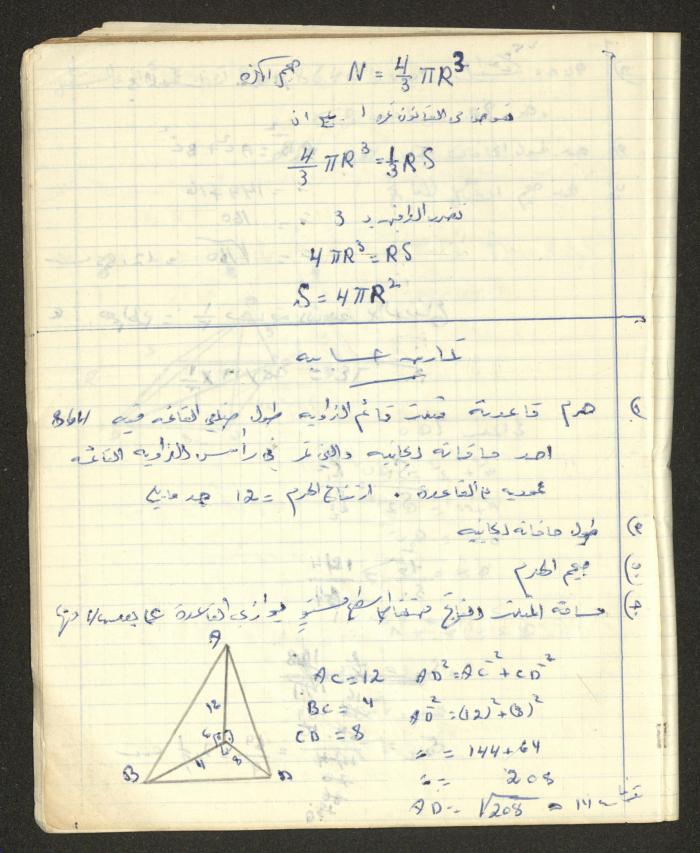 حجم الكرة N = 4/3 πR³
نعوض في القانون نمرة 1 ينتج ان
4/3 πR³ = 1/3 RS
نضرب الطرفين بـ 3
4πR³ = RS
S = 4πR²
تمارين حسابيه
هرم قاعدته مثلث قائم الزاويه طول ضلعي القائمه فيه 4 و 8
احد حافاته الجانبيه والتي تمر في رأس الزاويه القائمه
عموديه على القاعدة . ارتفاع الهرم = 12 جد مايلي
طول حافاته الجانبيه
حجم الهرم
مساحة المثلث الناتج من مستو يوازي القاعدة على بعد
A
12
C
4
8
B
D
AC = 12
BC = 4
CD = 8
AD² = AC² + CD²
AD² = (12)² + (8)²
= = 144 + 64
= = 208
AD = √208 = 14 تقريبا